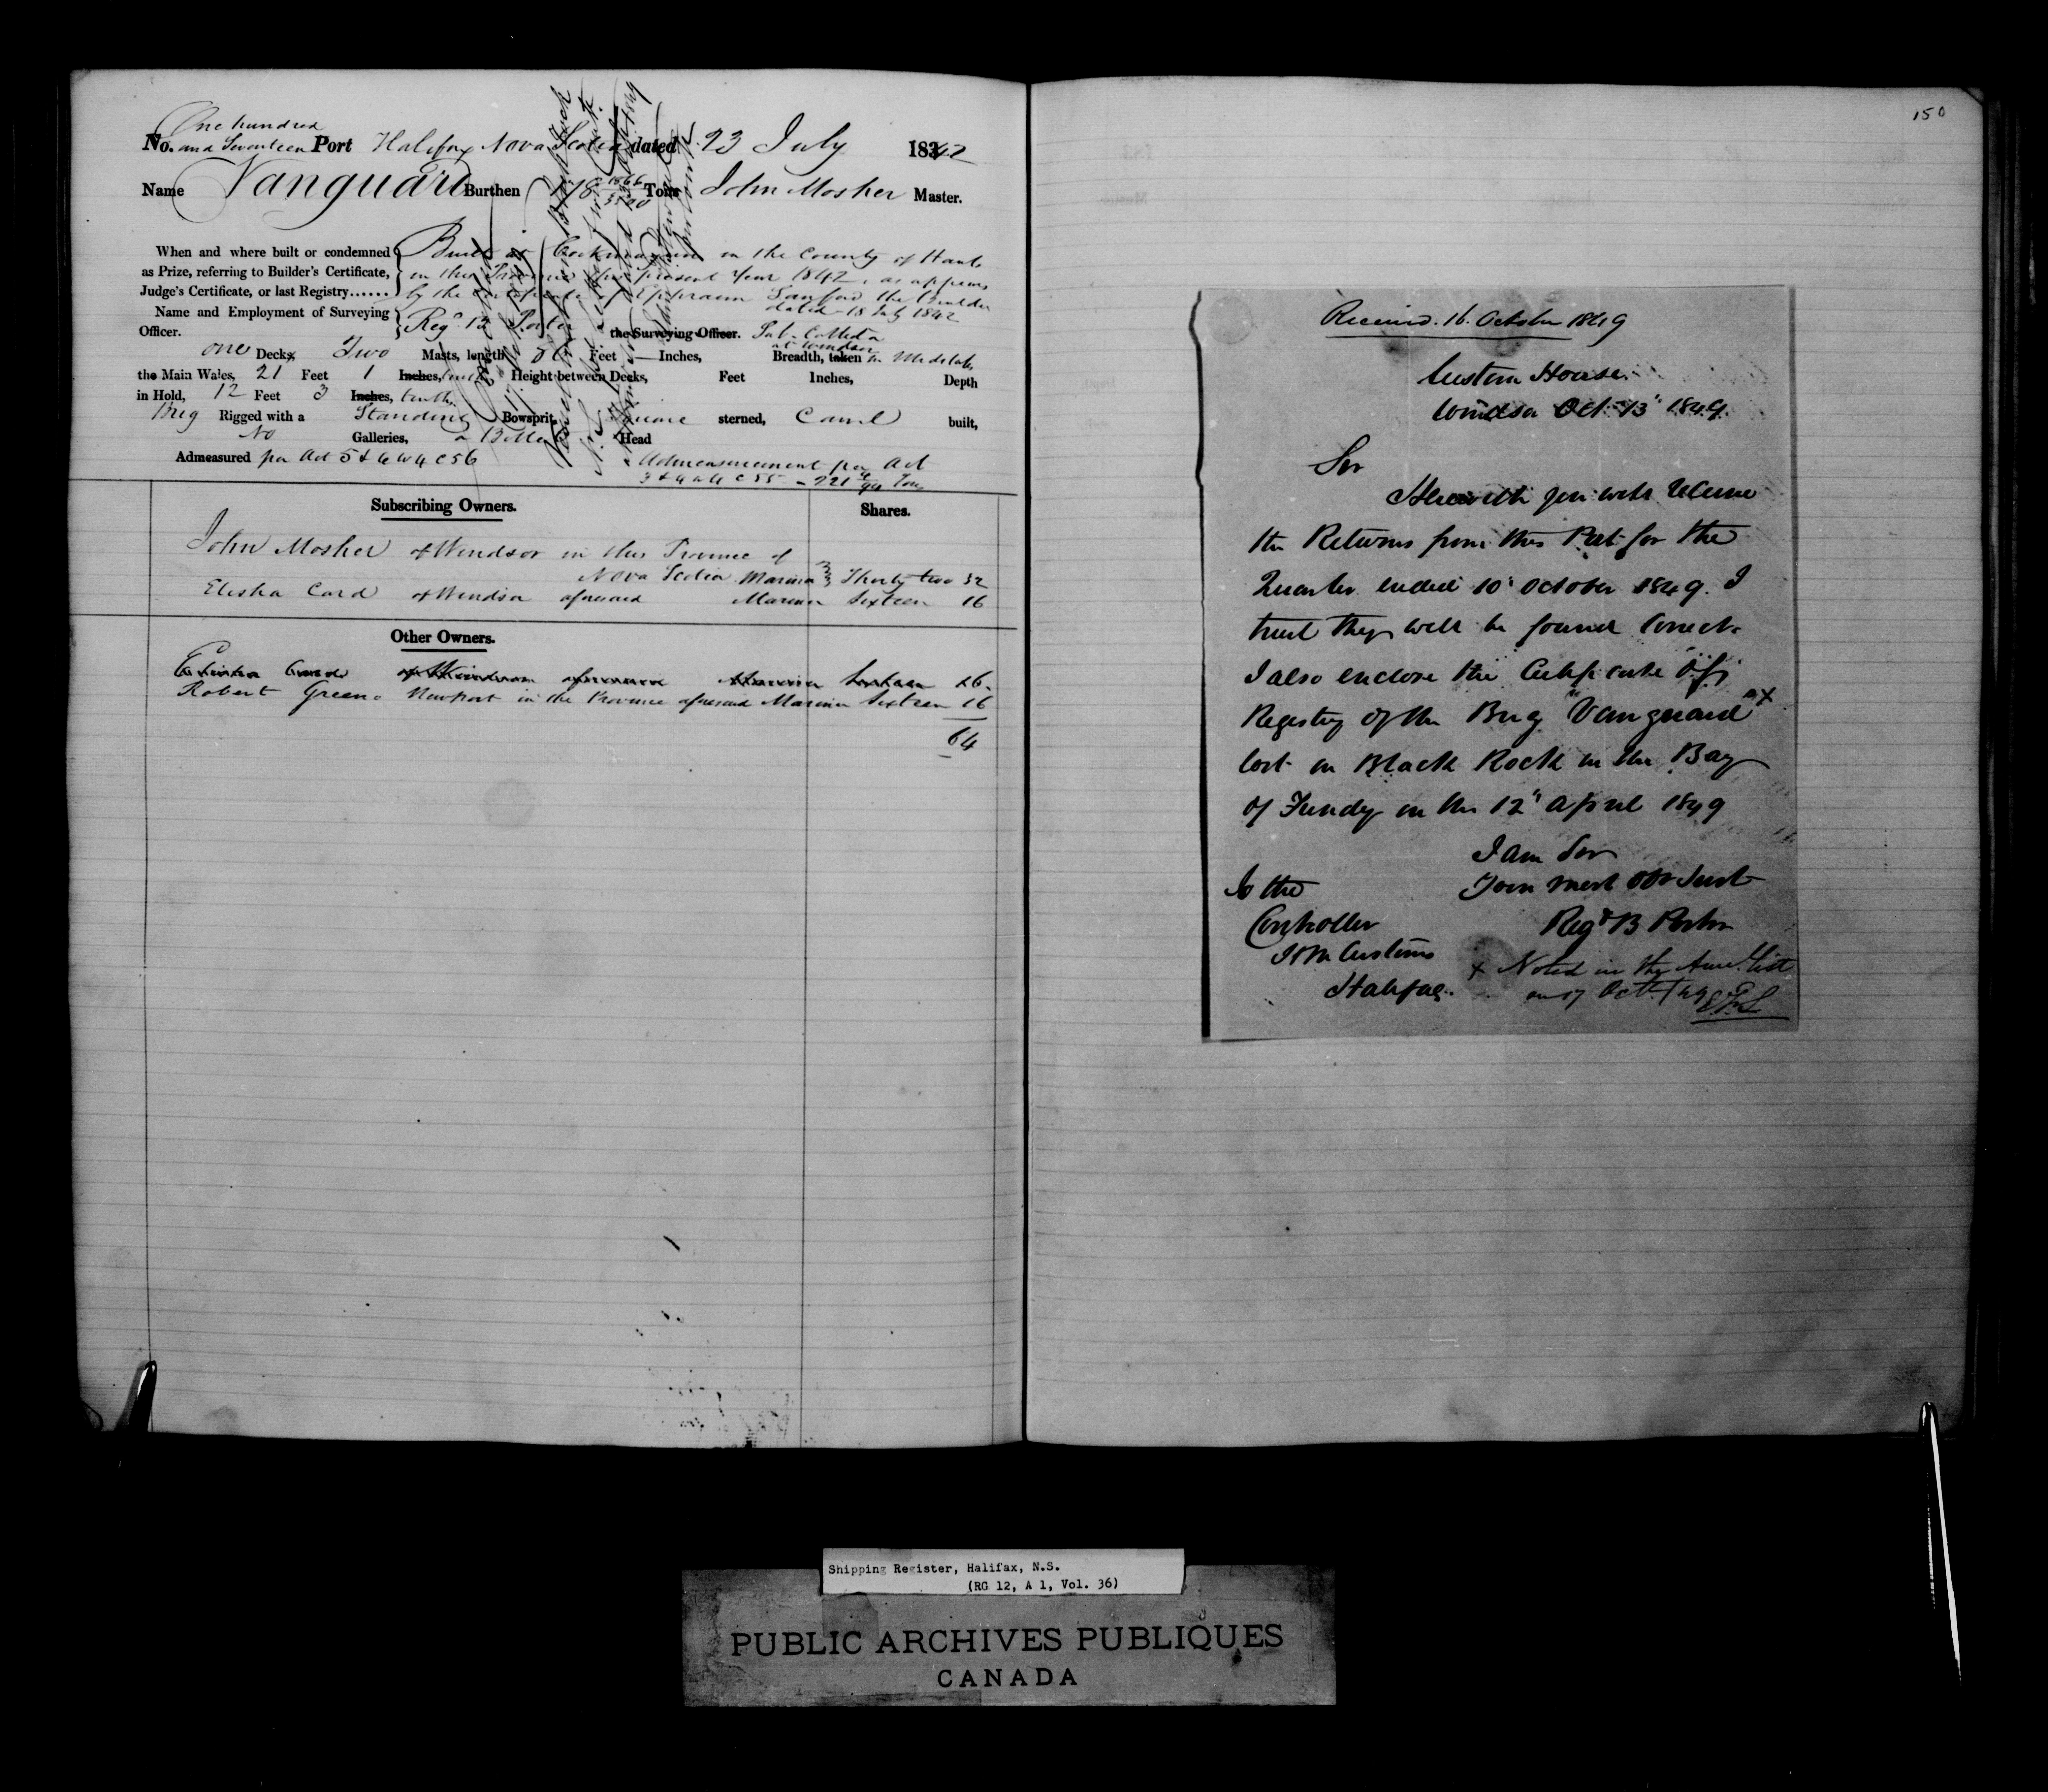 One hundred
No. and Seventeen Port Halifax Nova Scotia dated 23 July 1842
Name Vanguard Burthen 178 1866/3500 Tons John Mosher Master.
When and where built or condemned
as Prize, referring to Builder's Certificate,
Judge's Certificate, or last Registry......
Built at in the County of Hants
in this Province the present Year 1842, as appears
by the Certificate of Ephraim Sanford the Builder
dated 18 July 1842
Name and Employment of Surveying
Officer.
Regd B Porter the Surveying Officer. Sub. Collector
at Windsor
one Decks, Two Masts, length Feet — Inches, Breadth, taken in Midships
the Main Wales, 21 Feet 1 Inches, tenth Height between Decks, Feet Inches, Depth
in Hold, 12 Feet 3 Inches, tenths
Brig Rigged with a Standing Bowsprit, Square sterned, Carvel built,
No Galleries, a Billet Head
Admeasured per Act 5 & 6 W 4 C 56
Admeasurement per Act
3 & 4 W 4 C 55 - 221 /94 Tons
Subscribing Owners. Shares.
John Mosher of Windsor in this Province of
Nova Scotia Mariner Thirty two 32
Elisha Card of Windsor aforesaid Mariner Sixteen 16
Other Owners.
Elisha Card of Windsor aforesaid Mariner Sixteen 16
Robert Greeno Newport in the Province aforesaid Mariner Sixteen 16
64
150
Received. 16. October 1849
Custom House
Windsor Oct. 13" 1849.
Sir
Herewith you will receive
the Returns from this Port for the
Quarter ended 10" October 1849. I
trust they will be found Correct.
I also enclose the Certificate of
Registry of the Brig "Vanguard" x
lost on Black Rock in the Bay
of Fundy on the 12" April 1849
I am Sir
Your most obt Servt
Regd B Porter
To the
Controller
H M Customs
Halifax.
x Noted in the list
on 17 Oct.
Shipping Register, Halifax, N.S.
(RG 12, A 1, Vol. 36)
PUBLIC ARCHIVES PUBLIQUES
CANADA